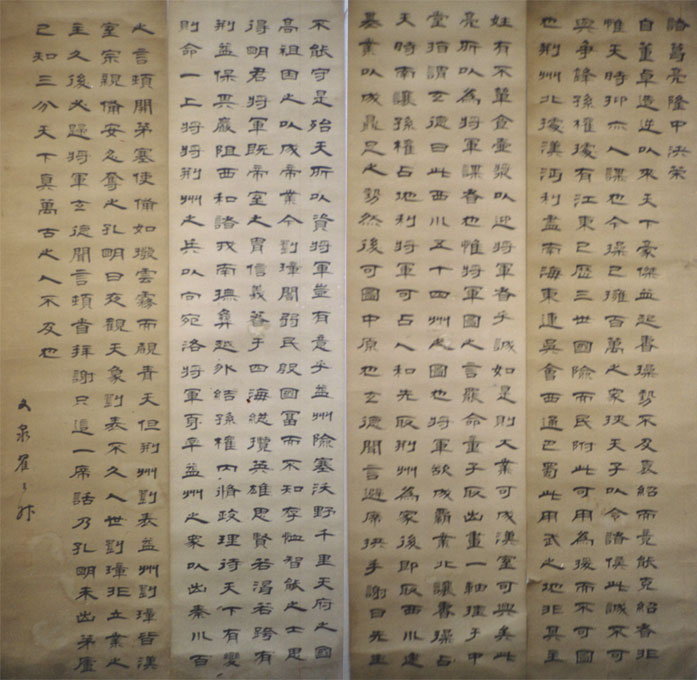 諸葛亮隆中決策
自董卓造逆以來天下豪傑並起曹操勢不及袁紹而竟能克紹者非
惟天時抑亦人謀也今操已擁百萬之眾挾天子以令諸侯此誠不可
與爭鋒孫權據有江東已歷三世國險而民附此可用為援而不可圖
也荊州北據漢沔利盡南海東連吳會西通巴蜀此用武之地非其主
姓有不簞食壺漿以迎將軍者乎誠如是則大業可成漢室可興矣此
亮所以為將軍謀者也惟將軍圖之言罷命童子取出畫一軸挂于中
堂指謂玄德曰此西川五十四州之圖也將軍欲成霸業北讓曹操占
天時南讓孫權占地利將軍可占人和先取荊州為家後即取西川建
基業以成鼎足之勢然後可圖中原也玄德聞言避席拱手謝曰先生
不能守是殆天所以資將軍豈有意乎益州險塞沃野千里天府之國
高祖因之以成帝業今劉璋闇弱民殷國富而不知存恤智能之士思
得明君將軍既帝室之胄信義著于四海總攬英雄思賢若渴若跨有
荊益保其巖阻西和諸戎南撫彝越外結孫權內修政理待天下有變
則命一上將將荊州之兵以向宛洛將軍身率益州之眾以出秦川百
之言頓開茅塞使備如撥雲霧而睹青天但荊州劉表益州劉璋皆漢
室宗親備安忍奪之孔明曰夜觀天象劉表不久人世劉璋非立業之
主久後必歸將軍玄德聞言頓首拜謝只這一席話乃孔明未出茅廬
已知三分天下真萬古之人不及也